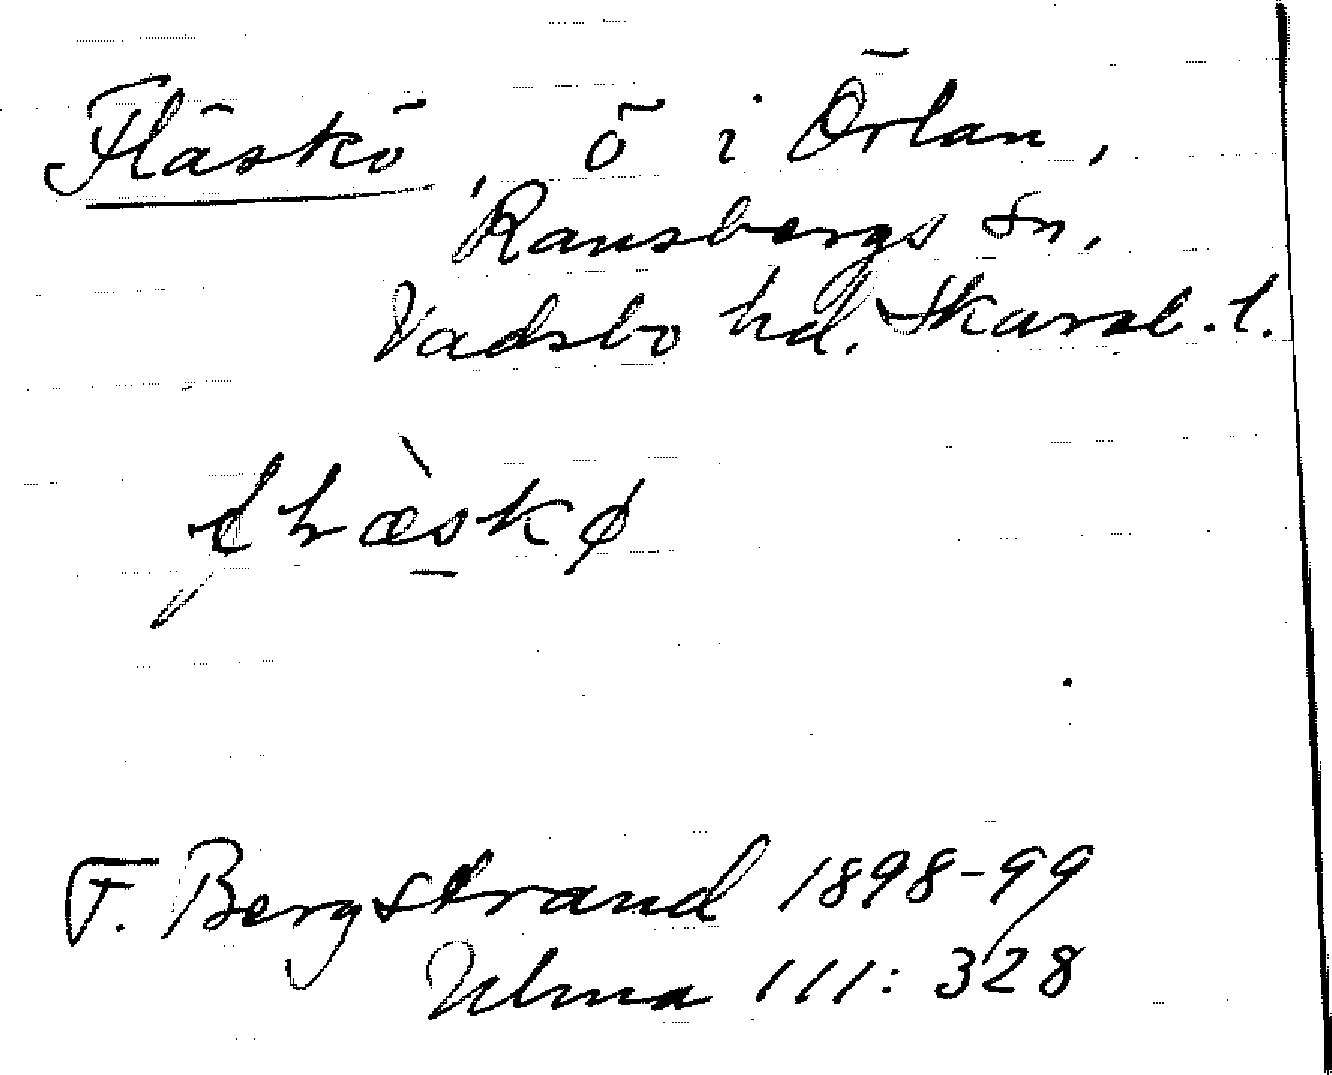 Fläskö, ö i Örlan,
Ransbergs sn,
Vadsbo hd. Skarab. l.
fLæ̀skø
F. Bergstrand 1898-99
Ulma 111: 328